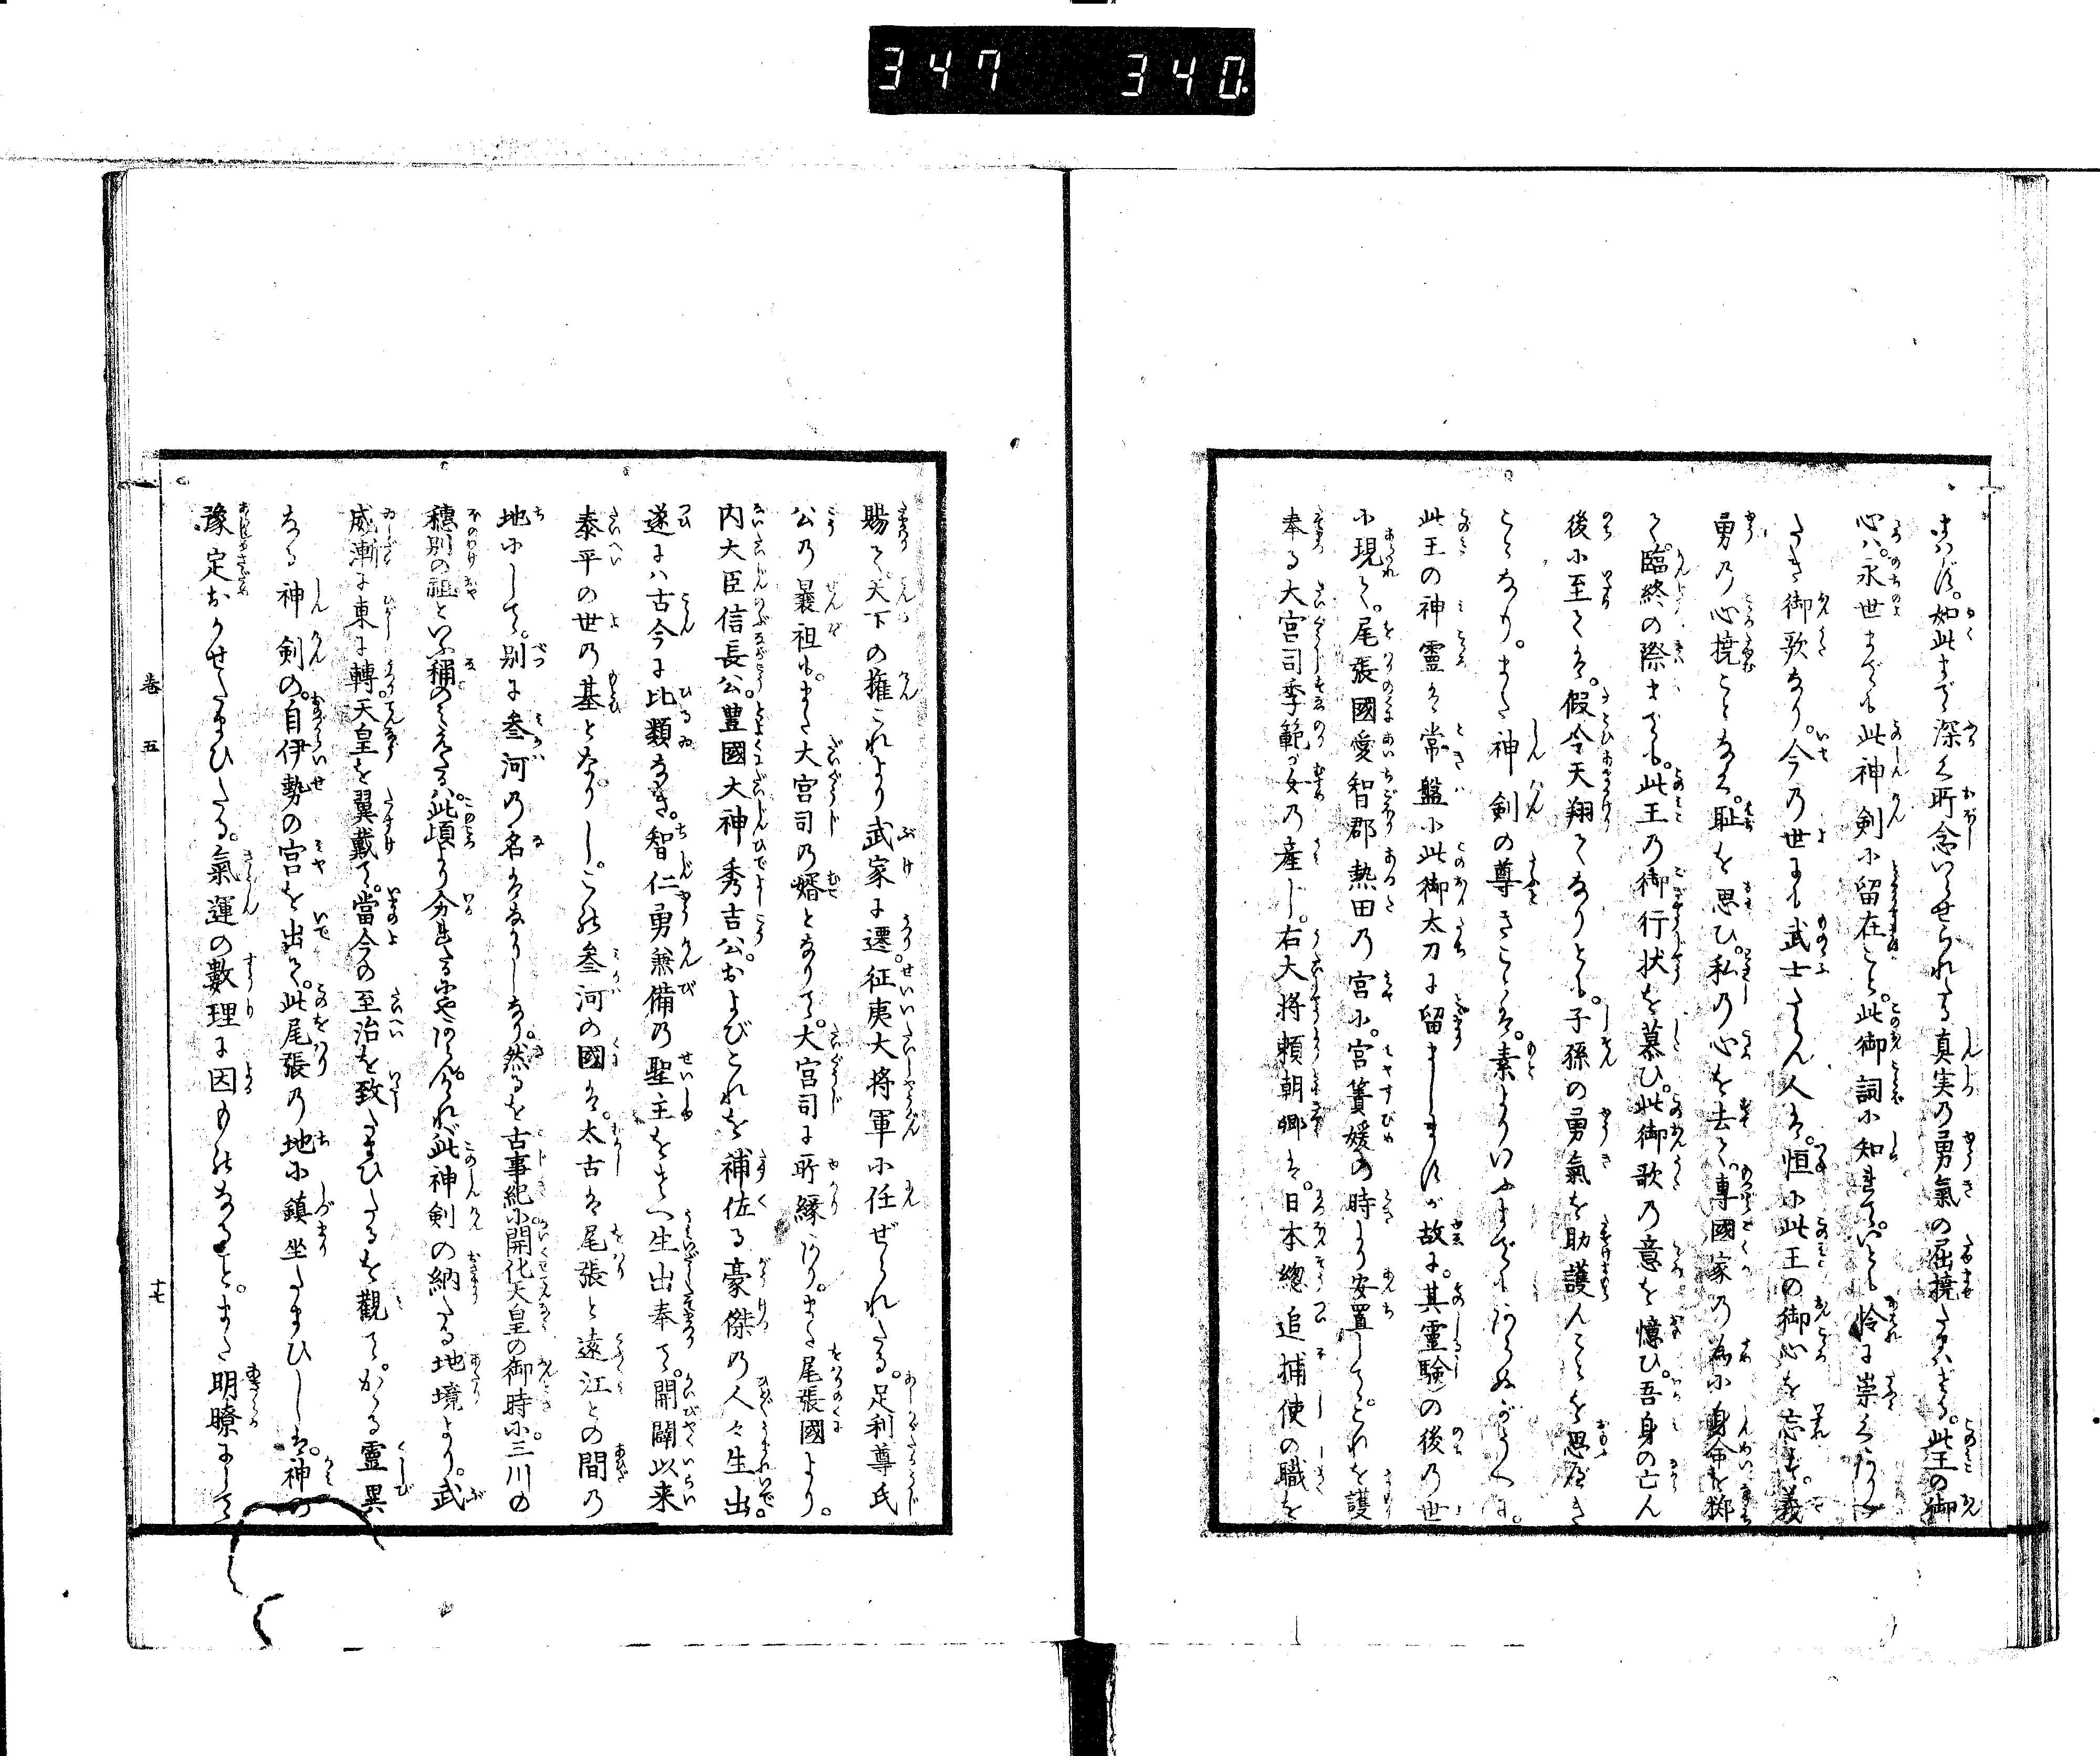 347 340.
まはず。如此まで深く所念いらせられたる真実の勇氣の屈撓たまはざる。此王の御
心ハ。永世までも此神剣に留在こと。此御詞に知れて。いとも怜に崇くありが
たき御歌なり。今の世にも武士たらん人は。恒に此王の御心を忘れず。義
勇の心撓ことなく。恥を思ひ。私の心を去て。專國家の為に身命を擲
て。臨終の際までも。此王の御行状を慕ひ。此御歌の意を憶ひ。吾身の亡ん
後に至ては。假令天翔てなりとも。子孫の勇氣を助護んことを思べき
ことなり。また神剣の尊きことは。素よりいふまでもあらぬがうへに。
此王の神靈は常盤に此御太刀に留ましますが故に。其靈験の後の世
に現て。尾張國愛智郡熱田の宮に。宮簀媛の時より安置して。これを護
奉る大宮司季範が女の産じ。右大将頼朝卿は。日本總追捕使の職を
賜て。天下の權これより武家に遷。征夷大将軍に任ぜられたる。足利尊氏
公の曩祖も。また大宮司の婿となりて。大宮司に所縁あり。また尾張國より。
内大臣信長公。豊國大神秀吉公。およびこれを補佐る豪傑の人々生出。
遂にハ古今に比類なき。智仁勇兼備の聖主をさへ生出奉て。開闢以来
泰平の世の基となりし。この叁河の國は。太古は尾張と遠江との間の
地にして。別に叁河の名はなかりしなり。然るを古事紀に開化天皇の御時に。三川の
穗別の祖といふ稱のみえたるハ。此頃より分れたるにやあらん。されば此神剣の納たる地境より。武
威漸に東に轉。天皇を翼戴て。當今の至治を致たまひたるを觀て。かゝる靈異
なる神剣の。自伊勢の宮を出て。此尾張の地に鎮坐たまひしは。神の
豫定おかせたまひたる。氣運の數理に因ものなること。また明瞭にして
巻五
十七